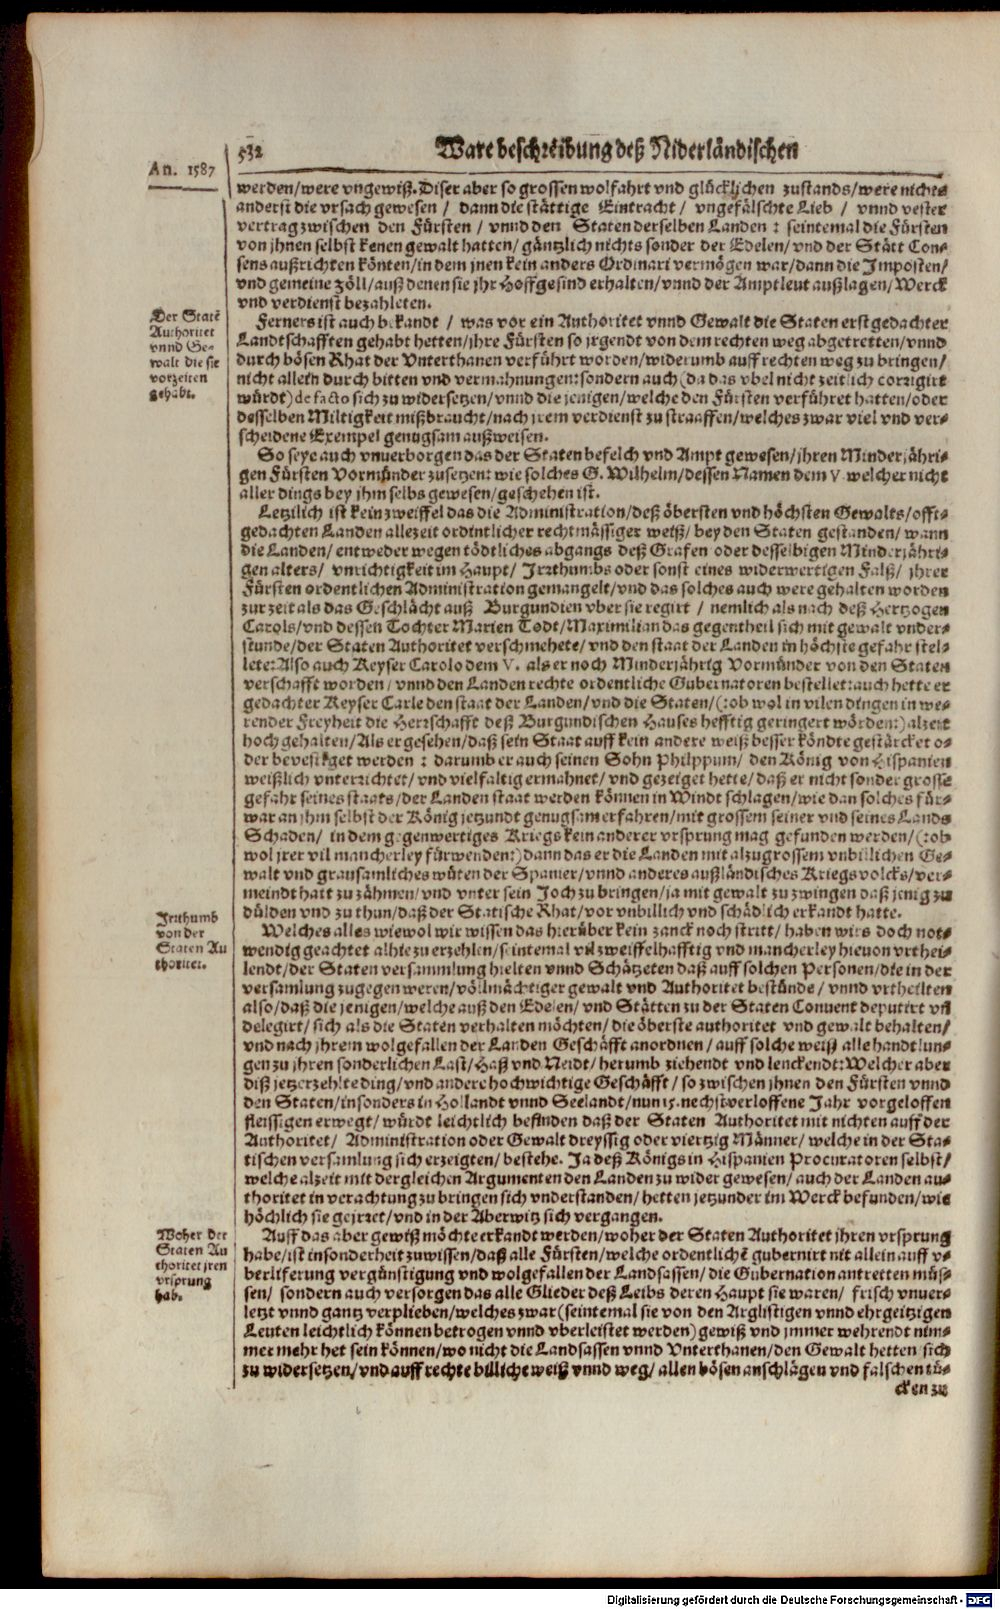 532 Ware beschreibung deß Niderländischen
An. 1587
werden/were vngewiß. Diser aber so grossen wolfahrt vnd glücklichen zustands/were nichts
anderst die vrsach gewesen / dann die stättige Eintracht / vngefälschte Lieb / vnnd vester
vertrag zwischen den Fürsten / vnnd den Staten derselben Landen : seintemal die Fürsten
von jhnen selbst kenen gewalt hatten/ gäntzlich nichts sonder der Edelen/vnd der Stätt Con-
sens außrichten könten/in dem jnen kein anders Ordinari vermögen war/dann die Imposten/
vnd gemeine Zöll/auß denen sie jhr Hoffgesind erhalten/vnnd der Amptleut außlagen/Werck
vnd verdienst bezahleten.
Der Statē
Authoritet
vnnd Ge-
walt die sie
vorzeiten
gehabt.
Ferners ist auch bekandt / was vor ein Authoritet vnnd Gewalt die Staten erst gedachter
Landtschafften gehabt hetten/jhre Fürsten so jrgendt von dem rechten weg abgetretten/vnnd
durch bösen Rhat der Vnterthanen verführt worden/widerumb auff rechten weg zu bringen/
nicht allein durch bitten vnd vermahnungen:sondern auch (da das vbel nicht zeitlich corrigirt
würdt) de facto sich zu widersetzen/vnnd die jenigen/welche den Fürsten verführet hatten/oder
desselben Miltigkeit mißbraucht/nach jrem verdienst zu straaffen/welches zwar viel vnd ver-
scheidene Exempel genugsam außweisen.
So seye auch vnuerborgen das der Staten befelch vnd Ampt gewesen/jhren Minderjähri-
gen Fürsten Vormünder zusetzen: wie solches G. Wilhelm/dessen Namen dem V. welcher nicht
aller dings bey jhm selbs gewesen/geschehen ist.
Letzlich ist kein zweiffel das die Administration/deß öbersten vnd höchsten Gewalts/offt-
gedachten Landen allezeit ordintlicher rechtmässiger weiß/ bey den Staten gestanden/ wann
die Landen/entweder wegen tödtliches abgangs deß Grafen oder desselbigen Minderjähri-
gen alters/ vnrichtigkeit im Haupt/ Irrthumbs oder sonst eines widerwertigen Falß/ jhrer
Fürsten ordentlichen Administration gemangelt/vnd das solches auch were gehalten worden
zur zeit als das Geschlächt auß Burgundien vber sie regirt / nemlich als nach deß Hertzogen
Carols/vnd dessen Tochter Marien Todt/Maximilian das gegentheil sich mit gewalt vnder-
stunde/der Staten Authoritet verschmehete/vnd den staat der Landen in höchste gefahr stel-
lete: Also auch Keyser Carolo dem V. als er noch Minderjährig Vormünder von den Staten
verschafft worden/vnnd den Landen rechte ordentliche Gubernatoren bestellet: auch hette er
gedachter Keyser Carle den staat der Landen/vnd die Staten/(:ob wol in vilen dingen in we-
render Freyheit die Herrschafft deß Burgundischen Hauses hefftig geringert wörden:) alzeit
hoch gehalten/Als er gesehen/daß sein Staat auff kein andere weiß besser köndte gestärcket o-
der bevestiget werden : darumb er auch seinen Sohn Philppum/ den König von Hispanien
weißlich vnterrichtet/vnd vielfaltig ermahnet/vnd gezeiget hette/daß er nicht sonder grosse
gefahr seines staats/der Landen staat werden können in Windt schlagen/wie dan solches für-
war an jhm selbst der König jetzundt genugsam erfahren/mit grossem seiner vnd seines Lands
Schaden/ in dem gegenwertiges Kriegs kein anderer vrsprung mag gefunden werden/(:ob
wol jrer vil mancherley fürwenden:) dann das er die Landen mit alzugrossem vnbillichen Ge-
walt vnd grausamliches wüten der Spanier/vnnd anderes außländisches Kriegsvolcks/ver-
meindt hatt zu zähmen/vnd vnter sein Joch zu bringen/ja mit gewalt zu zwingen daß jenig zu
dulden vnd zu thun/daß der Statische Rhat/vor vnbillich vnd schädlich erkandt hatte.
Jrrthumb
von der
Staten Au
thoritet.
Welches alles wiewol wir wissen das hierüber kein zanck noch stritt/haben wirs doch not-
wendig geachtet alhie zu erzehlen/seintemal vil zweiffelhafftig vnd mancherley hievon vrthei-
lendt/der Staten versammlung hielten vnnd Schätzeten daß auff solchen Personen/die in der
versamlung zugegen weren/völlmächtiger gewalt vnd Authoritet bestünde/vnnd vrtheilten
also/daß die jenigen/welche auß den Edelen/vnd Stätten zu der Staten Conuent deputirt vn̄
delegirt/sich als die Staten verhalten möchten/die öberste authoritet vnd gewalt behalten/
vnd nach jhrem wolgefallen der Landen Geschäfft anordnen/auff solche weiß alle handtlun-
gen zu jhren sonderlichen Last/Haß vnd Neidt/herumb ziehendt vnd lenckendt: Welcher aber
diß jetzerzehlte ding/vnd andere hochwichtige Geschäfft/so zwischen jhnen den Fürsten vnnd
den Staten/insonders in Hollandt vnnd Seelandt/nun 15. nechstverloffene Jahr vorgeloffen
fleissigen erwegt/würdt leichtlich befinden daß der Staten Authoritet mit nichten auff der
Authoritet/ Administration oder Gewalt dreyssig oder viertzig Männer/welche in der Sta-
tischen versamlung sich erzeigten/bestehe. Ja deß Königs in Hispanien Procuratoren selbst/
welche alzeit mit dergleichen Argumenten den Landen zu wider gewesen/auch der Landen au-
thoritet in verachtung zu bringen sich vnderstanden/hetten jetzunder im Werck befunden/wie
höchlich sie gejrret/vnd in der Aberwitz sich vergangen.
Woher der
Staten Au
thoritet jren
vrsprung
hab.
Auff das aber gewiß möchte erkandt werden/woher der Staten Authoritet jhren vrsprung
habe/ist insonderheit zuwissen/daß alle Fürsten/welche ordentlichē gubernirt nit allein auff v-
berliferung vergünstigung vnd wolgefallen der Landsassen/die Gubernation antretten müs-
sen/ sondern auch versorgen das alle Glieder deß Leibs deren Haupt sie waren/ frisch vnuer-
letzt vnnd gantz verplieben/welches zwar (seintemal sie von den Arglistigen vnnd ehrgeitzigen
Leuten leichtlich können betrogen vnnd vberleistet werden) gewiß vnd jmmer wehrendt nim-
mer mehr het sein können/wo nicht die Landsassen vnnd Vnterthanen/den Gewalt hetten sich
zu widersetzen/vnd auff rechte billiche weiß vnnd weg/ allen bösen anschlägen vnd falschen tü-
cken zu
Digitalisierung gefördert durch die Deutsche Forschungsgemeinschaft - DFG